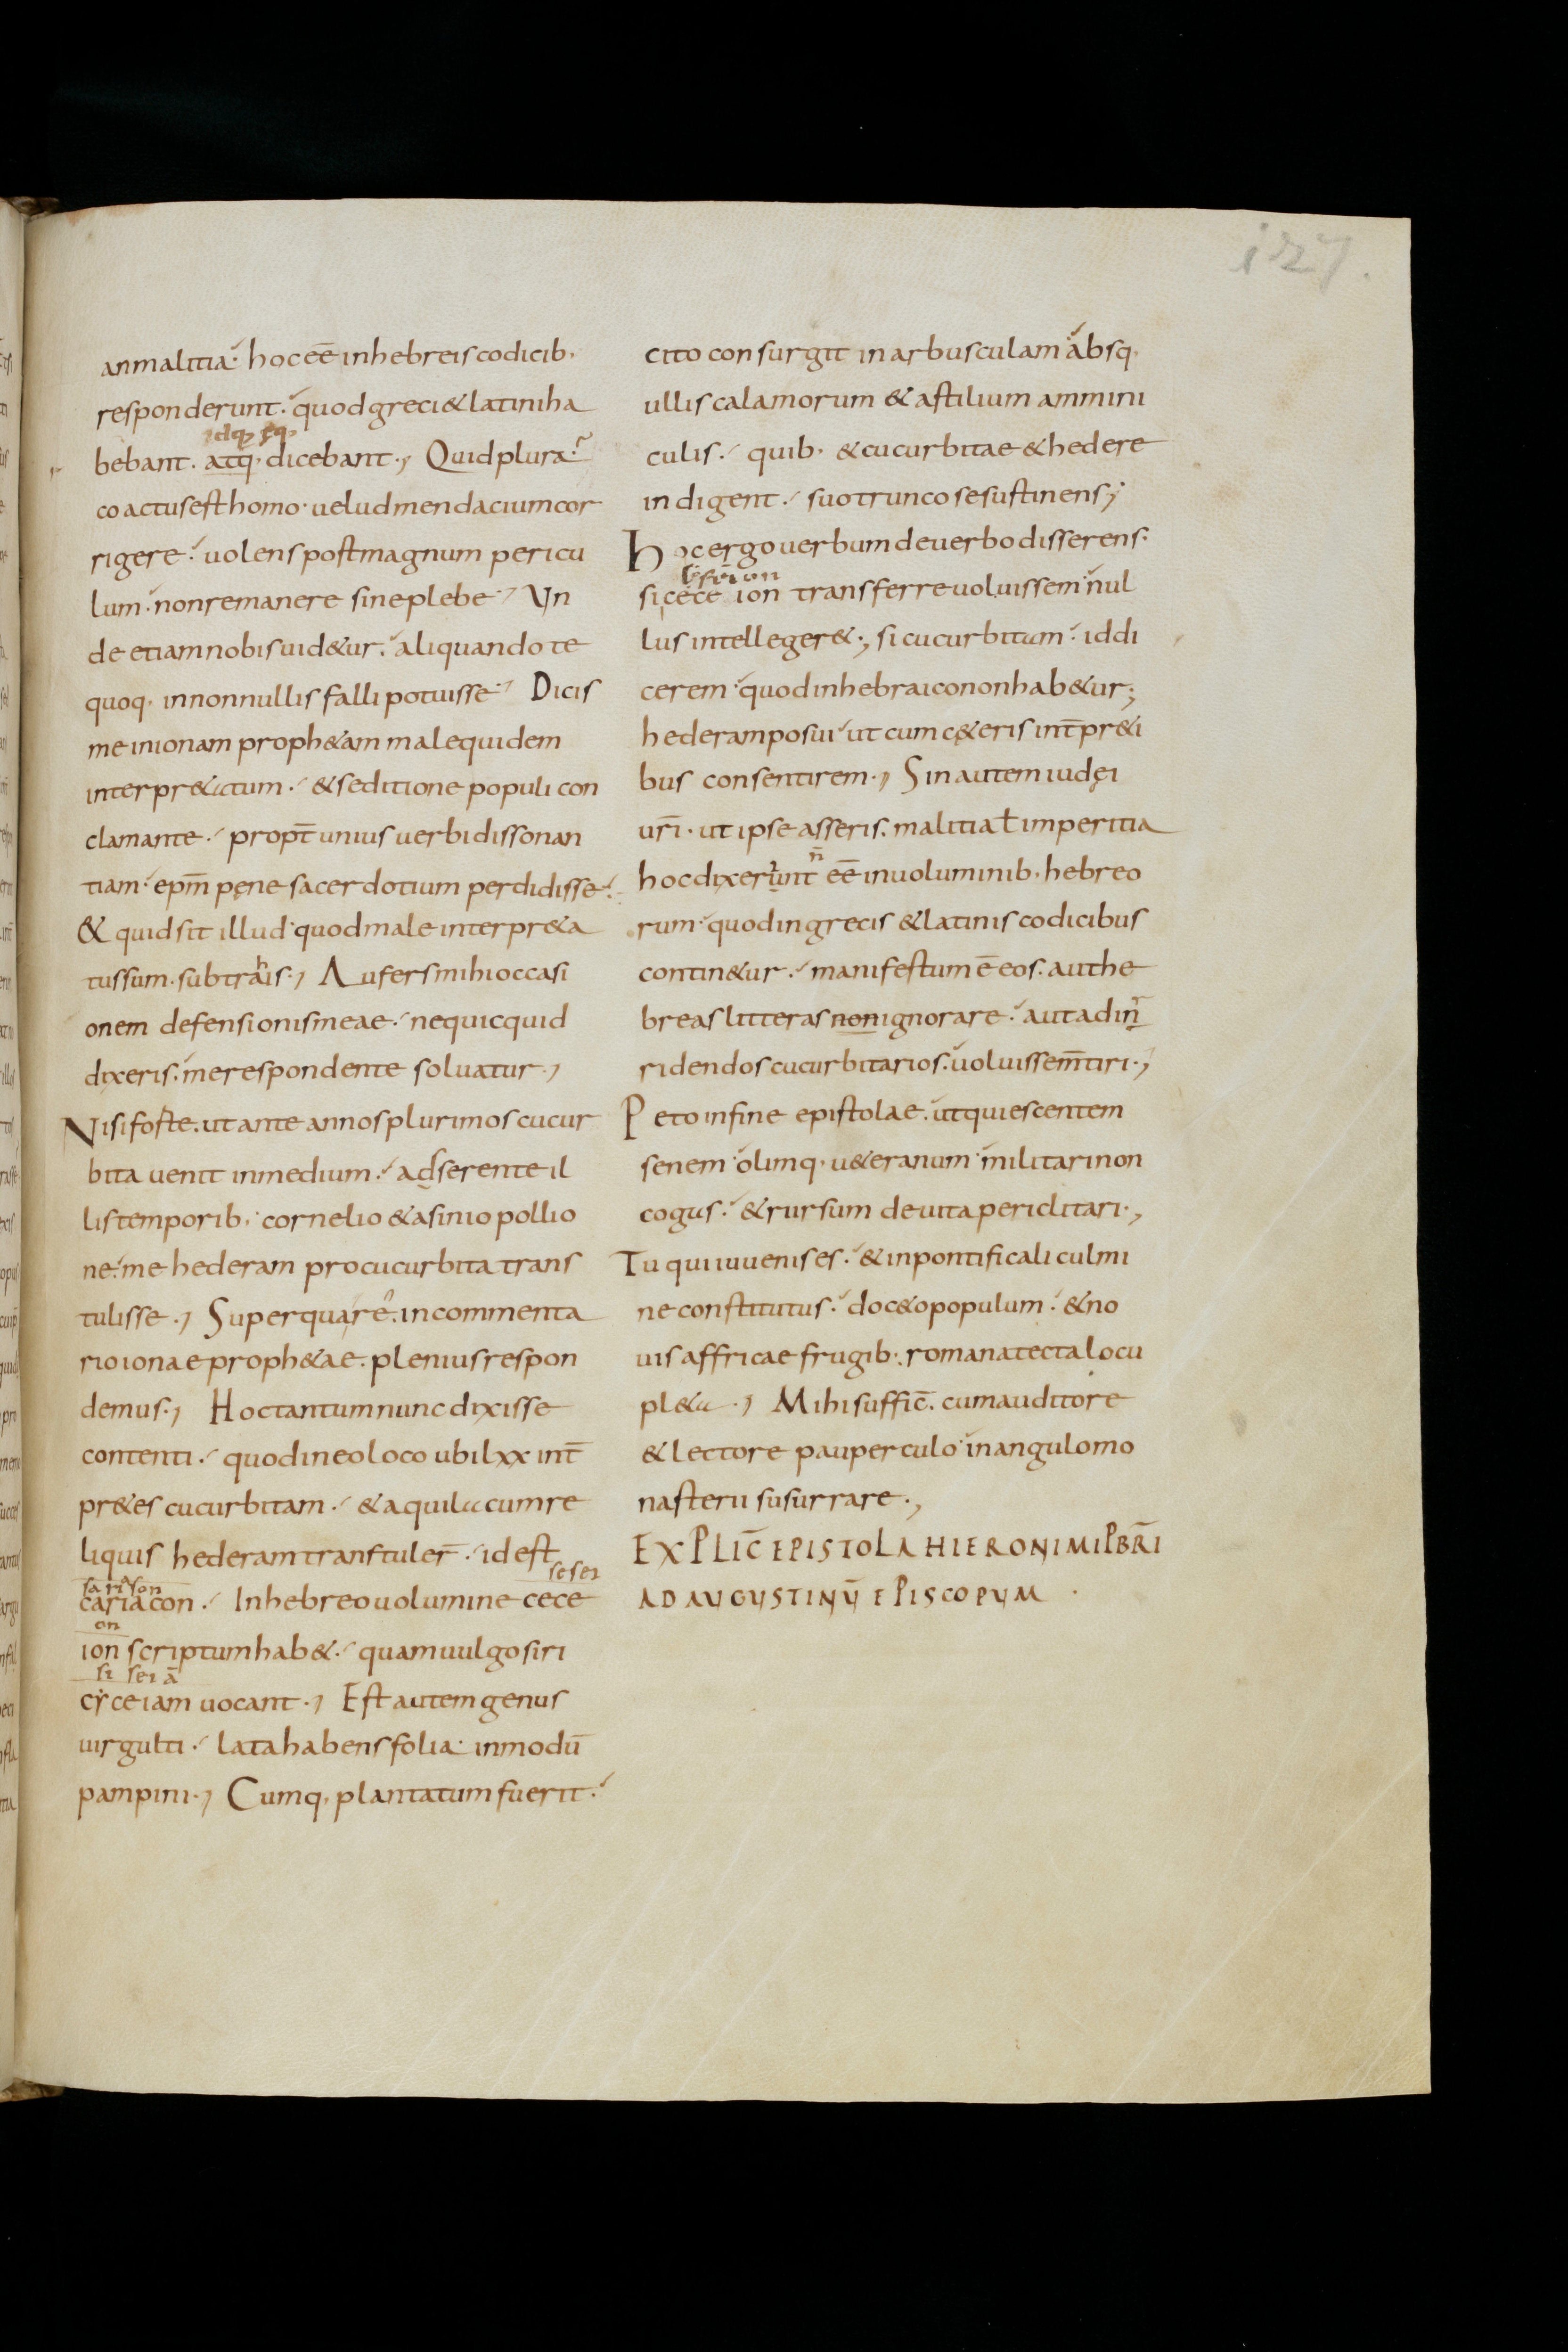 127.
an malitia· hoc eē in hebreis codicib·
responderunt· quod greci & latini ha
idq; eq;
bebant· atq· dicebant·, Quid plura·
coactus est homo· uelud mendacium cor
rigere· uolens post magnum pericu
lum· non remanere sine plebe·, Vn
de etiam nobis uid&ur· aliquando te
quoq· in nonnullis falli potuisse·, Dicis
me in ionam proph&am male quidem
interpr&atum· & seditione populi con
clamante· propt̄ unius uerbi dissonan
tiam· ep̄m pene sacerdotium perdidisse·
& quid sit illud· quod male interpr&a
tus sum· subtrahis·, Aufers mihi occasi
onem defensionis meae· ne quicquid
dixeris· me respondente soluatur·,
Nisi foste· ut ante annos plurimos cucur
bita uenit in medium· adserente il
lis temporib· cornelio & asinio pollio
ne· me hederam pro cucurbita trans
tulisse·, Super qua re· in commenta
rio ionae proph&ae· plenius respon
demus·, Hoc tantum nunc dixisse
contenti· quod in eo loco ubi lxx int̄
pr&es cucurbitam· & aquila cum re
liquis hederam transtuler̄· id est
sesei
sarison
cariacon· In hebreo uolumine cece
on
ion scriptum hab&· quam uulgo siri
si sei ā
cyceiam uocant·, Est autem genus
uirgulti· lata habens folia· in modū
pampini·, Cumq· plantatum fuerit·
cito consurgit in arbusculam absq·
ullis calamorum & astilium ammini
culis· quib· & cucurbitae & hedere
indigent· suo trunco se sustinens;
Hoc ergo uerbum de uerbo disserens·
si cece ion transferre uoluissem· nul
lus intelleger&·, si cucurbitam· id di
cerem· quod in hebraico non hab&ur;
hederam posui· ut cum c&eris int̄pr&i
bus consentirem·, Sin autem iudęi
ur̄i· ut ipse asseris· malitia ł imperitia
n̄
hoc dixerunt eē in uoluminib· hebreo
rum· quod in grecis & latinis codicibus
contin&ur· manifestum ē eos· aut he
breas litteras non ignorare· aut ad inr
ridendos cucurbitarios· uoluisse m̄tiri·,
Peto in fine epistolae· ut quiescentem
senem· olimq· u&eranum· militari non
cogas· & rursum de uita periclitari·,
Tu qui iuuenis es· & in pontificali culmi
ne constitutus· doc&o populum· & no
uis affricae frugib· romana tecta locu
pl&a·, Mihi suffic̄· cum auditore
& lectore pauperculo· in angulo mo
nasterii susurrare·,
EXPLIC̄ EPISTOLA HIERONIMI PBR̄I
AD AUGUSTINŪ EPISCOPUM